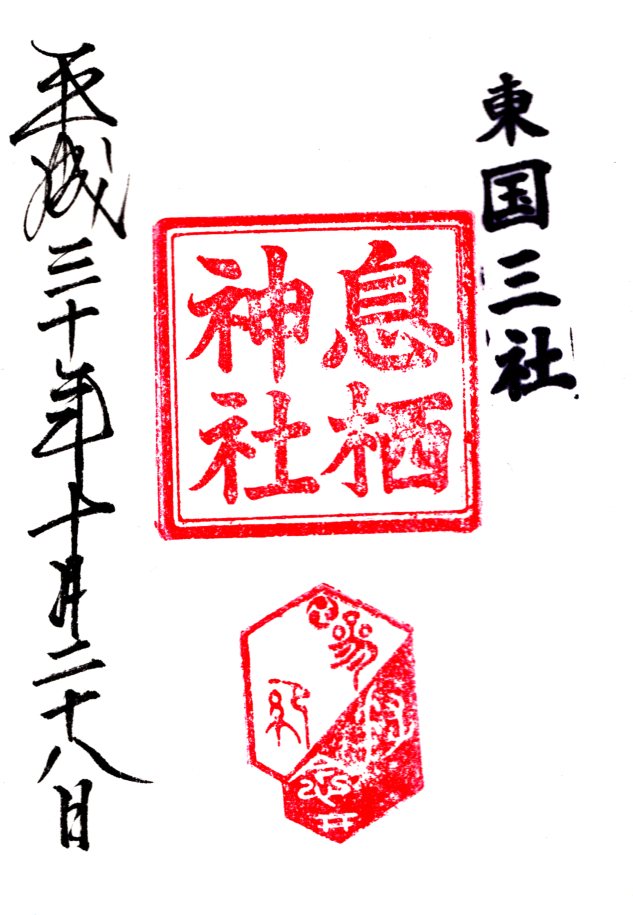 東国三社
息栖
神社
平成三十年十月二十八日